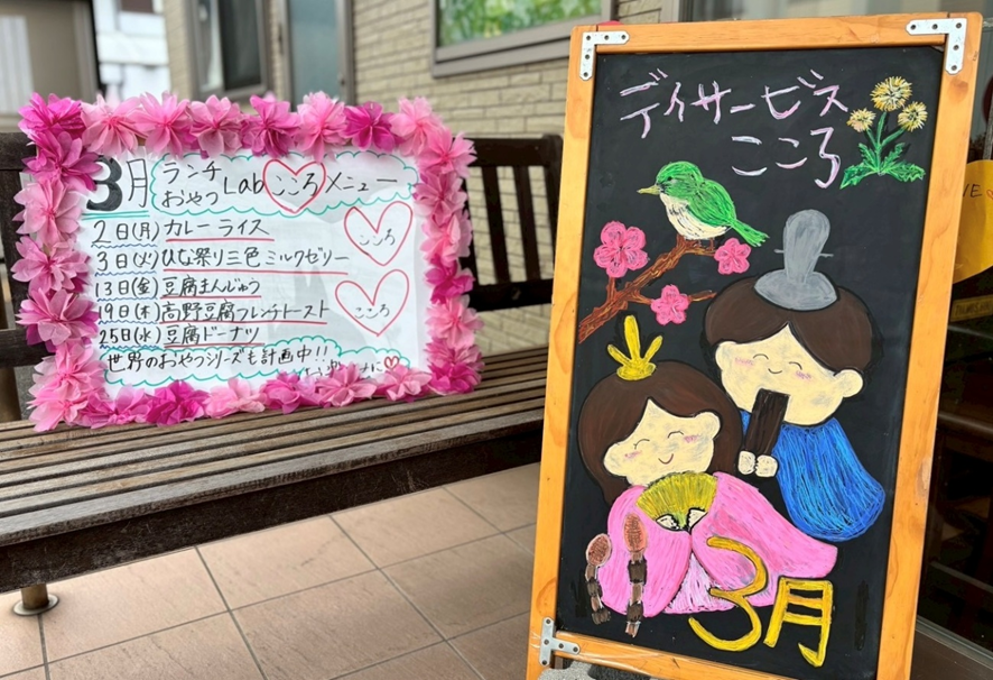 3月 ランチ おやつ Lab こころ メニュー
2日(月) カレーライス
3日(火) ひな祭り三色ミルクゼリー
13日(金) 豆腐まんじゅう
19日(木)高野豆腐フレンチトースト
25日(水) 豆腐ドーナツ
世界のおやつシリーズも計画中!!
こころ
こころ
デイサービス
こころ
3月